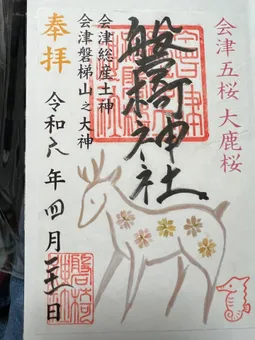 会津五桜 大鹿桜
磐梯神社
会津総産土神
会津磐梯山之大神
奉拝
令和六年四月 日